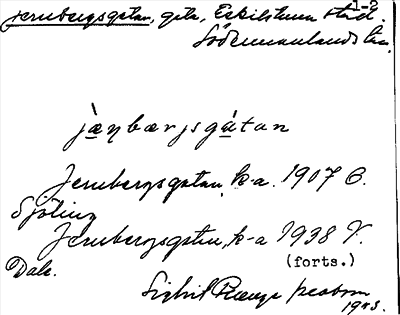 1-2
Jernbergsgatan, gata, Eskilstuna stad.
Södermanlands län.
jæ̀ŋbærjsgàtan
Jernbergsgatan, k-a. 1907 C.
Sjöling
Jernbergsgatan, k-a 1938 V.
(forts.)
Dale.
Sigrid
1943.